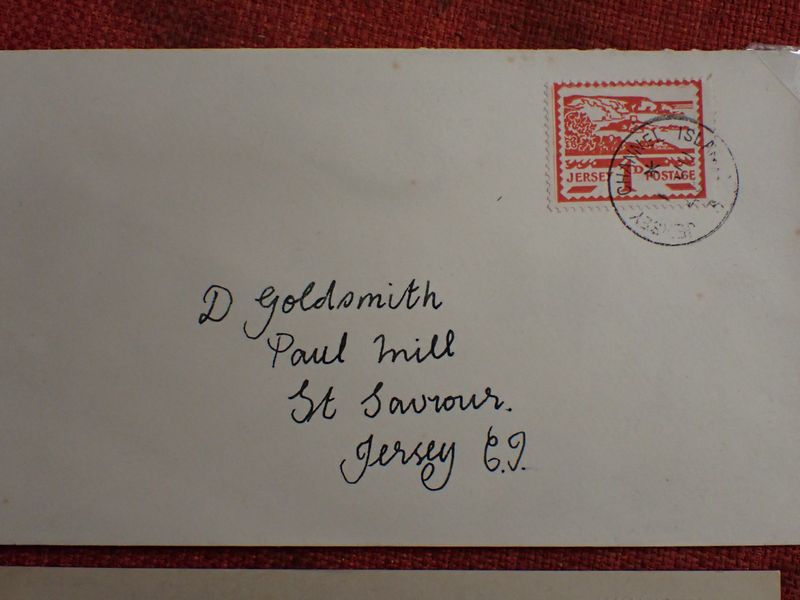 JERSEY 1D POSTAGE
JERSEY CHANNEL ISLANDS
D Goldsmith
Paul Mill
St Saviour.
Jersey C.I.